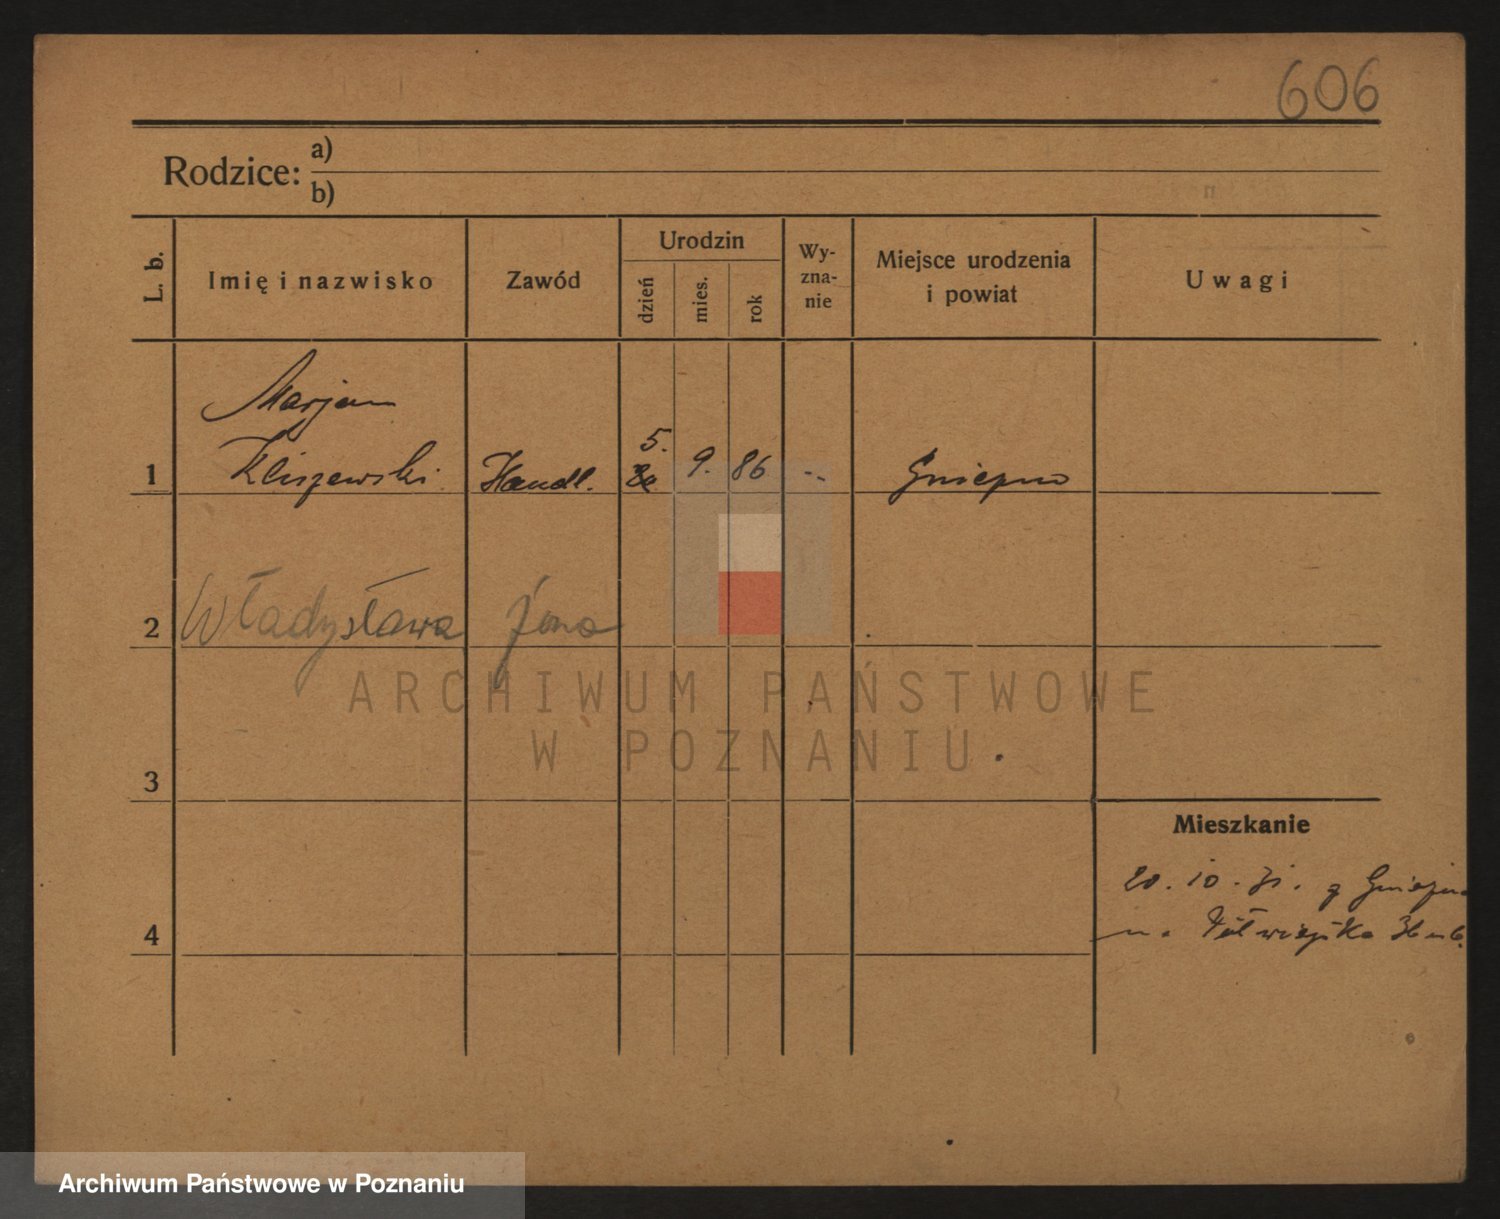 606
Rodzice: a)
b)
L. b.
Imię i nazwisko
Zawód
Urodzin
dzień
mies.
rok
Wy-
zna-
nie
Miejsce urodzenia
i powiat
Uwagi
Marjan
1 Kliszewski Handl. 5. 9. 86 -- Gniezno
2 Władysława żona
3
4
Mieszkanie
20. 10. 31. z Gniezna
na Półwiejska 36 m 6.
ARCHIWUM PAŃSTWOWE
W POZNANIU
Archiwum Państwowe w Poznaniu